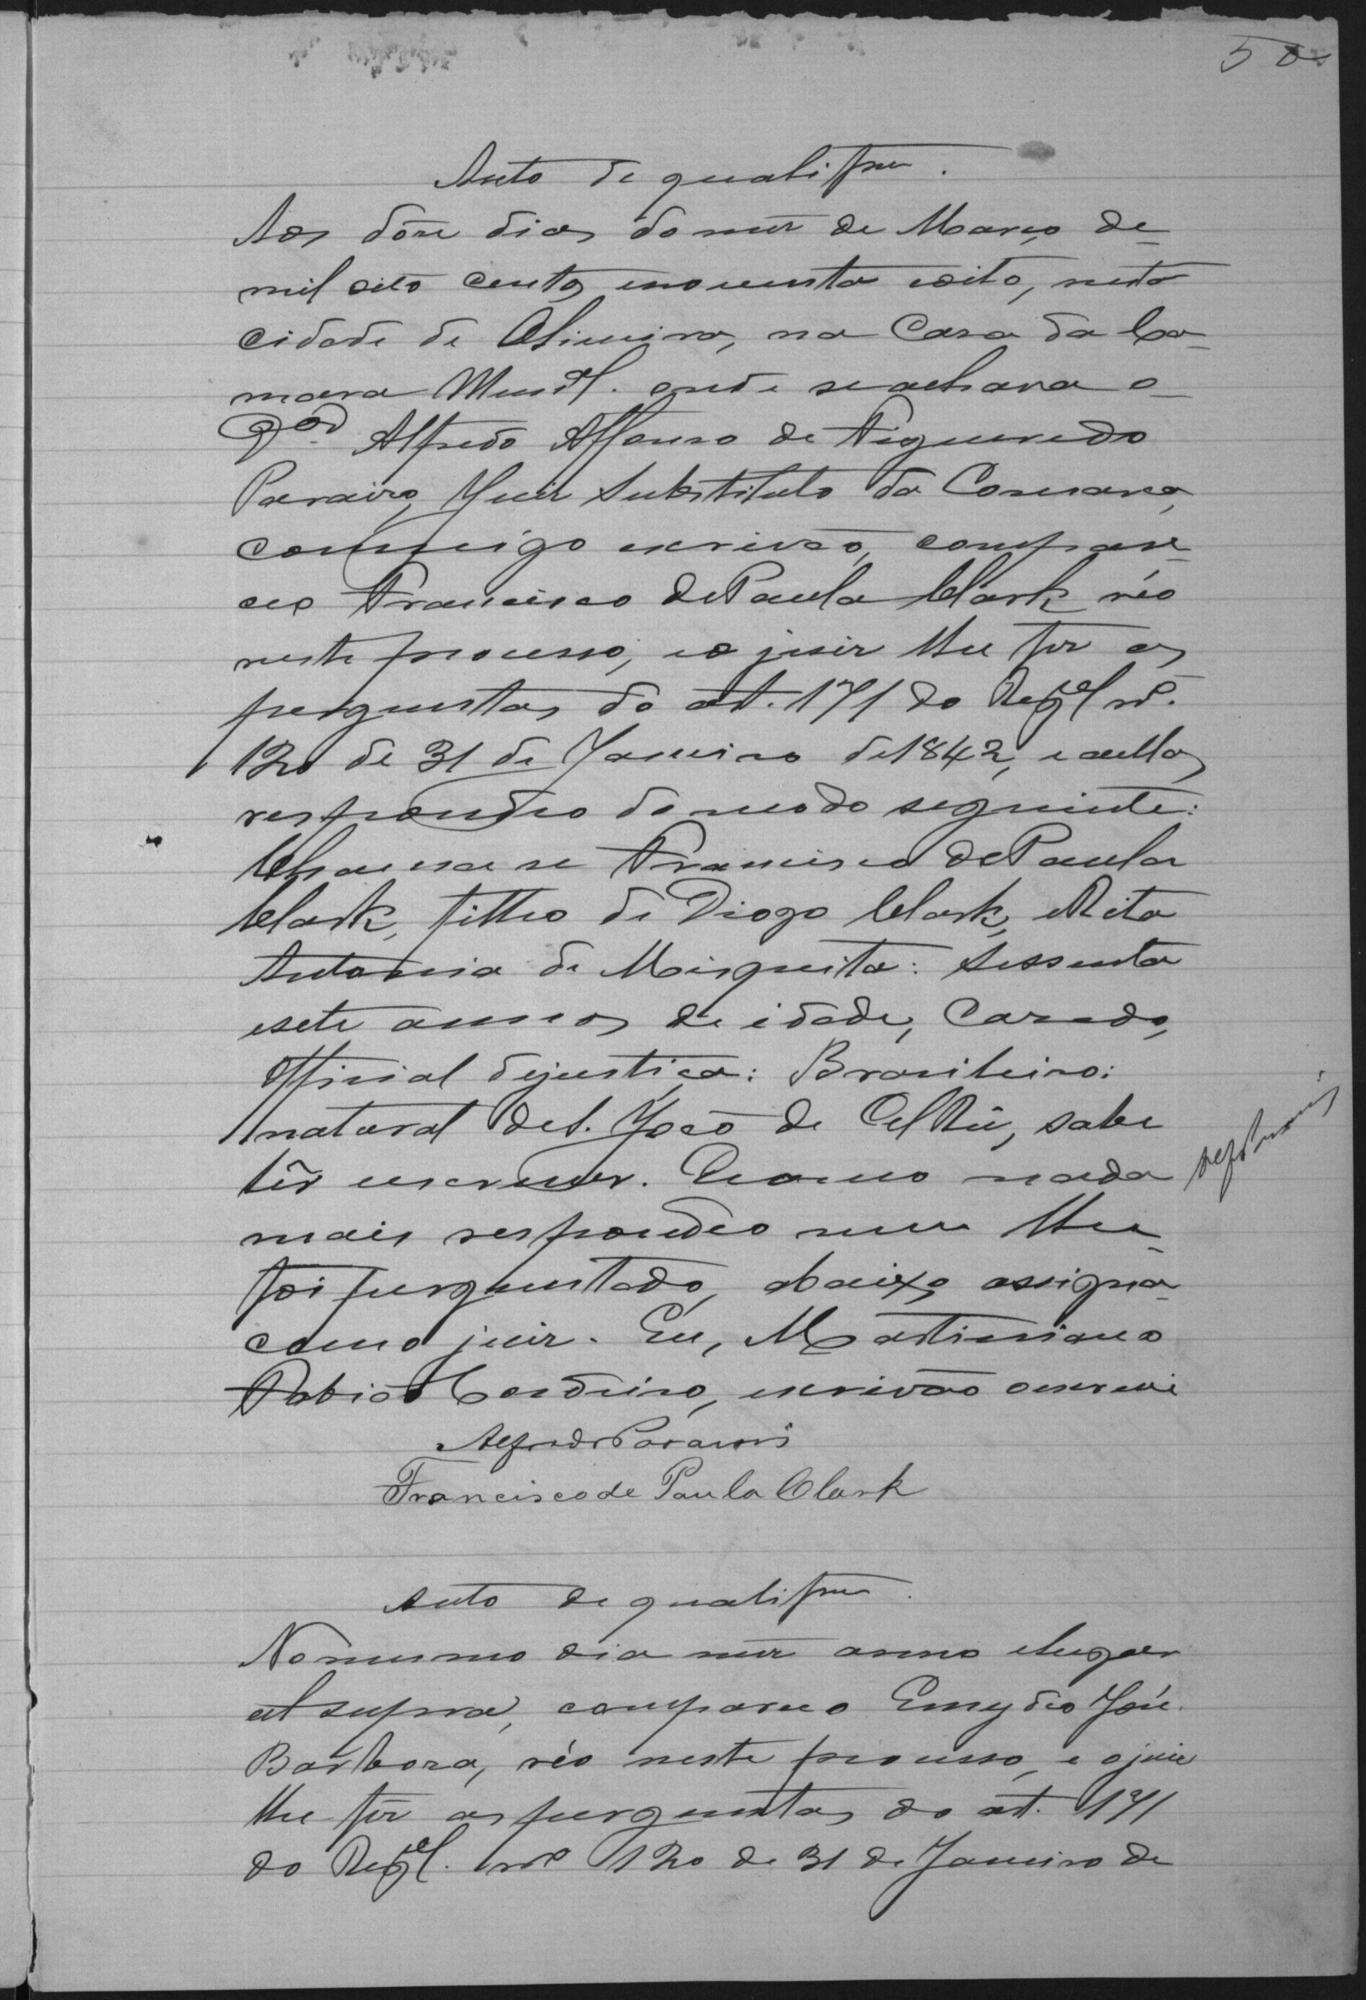 50
Auto de qualifcam.
Aos dôze dias do mez de Março de
mil oito centos enoventa eoito, nesta
cidade de Oliveira, na Casa da Ca-
mara Munal. onde seachava o
Alfredo Affonso de Figueredo
Paraizo, Juiz Substituto da Comarca,
commigo escrivão, compare-
ceo Francisco de Paula Clark réo
neste processo, eo juiz lhe fez as
perguntas do art. 171 do Regel nº.
120 de 31 de Janeiro de 1842, e aellas
respondeo do modo seguinte:
Chama se Francisco de Paula
Clark, filho de Diogo Clark, e Rita
Antonia de Misquita: Sessenta
esete annos de idade, Cazado,
Official dejustiça: Brazileiro:
natural de S. João de El Rei, sabe
lêr escrever. Ecomo nada
mais respondeo nem lhe
foi perguntado, abaixo assigna
como juiz. Eu, Martiniano
Fabio Cordeiro, escrivão oescrevi
Alfredo Paraizo
Francisco de Paula Clark
Auto de qualifcam.
Nomesmo dia mez anno elugar
ut supra, compareceo Emydio José
Barboza, réo neste processo, e ojuiz
lhe fez as perguntas do art. 171
do Regel. nº 120 de 31 de Janeiro de